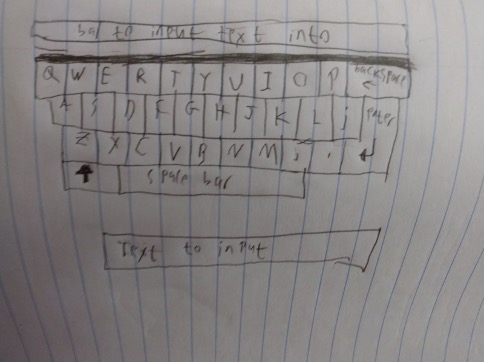 bar to input text into
Q W E R T Y U I O P backspace
A S D F G H J K L ; enter
Z X C V B N M , .
space bar
Text to input